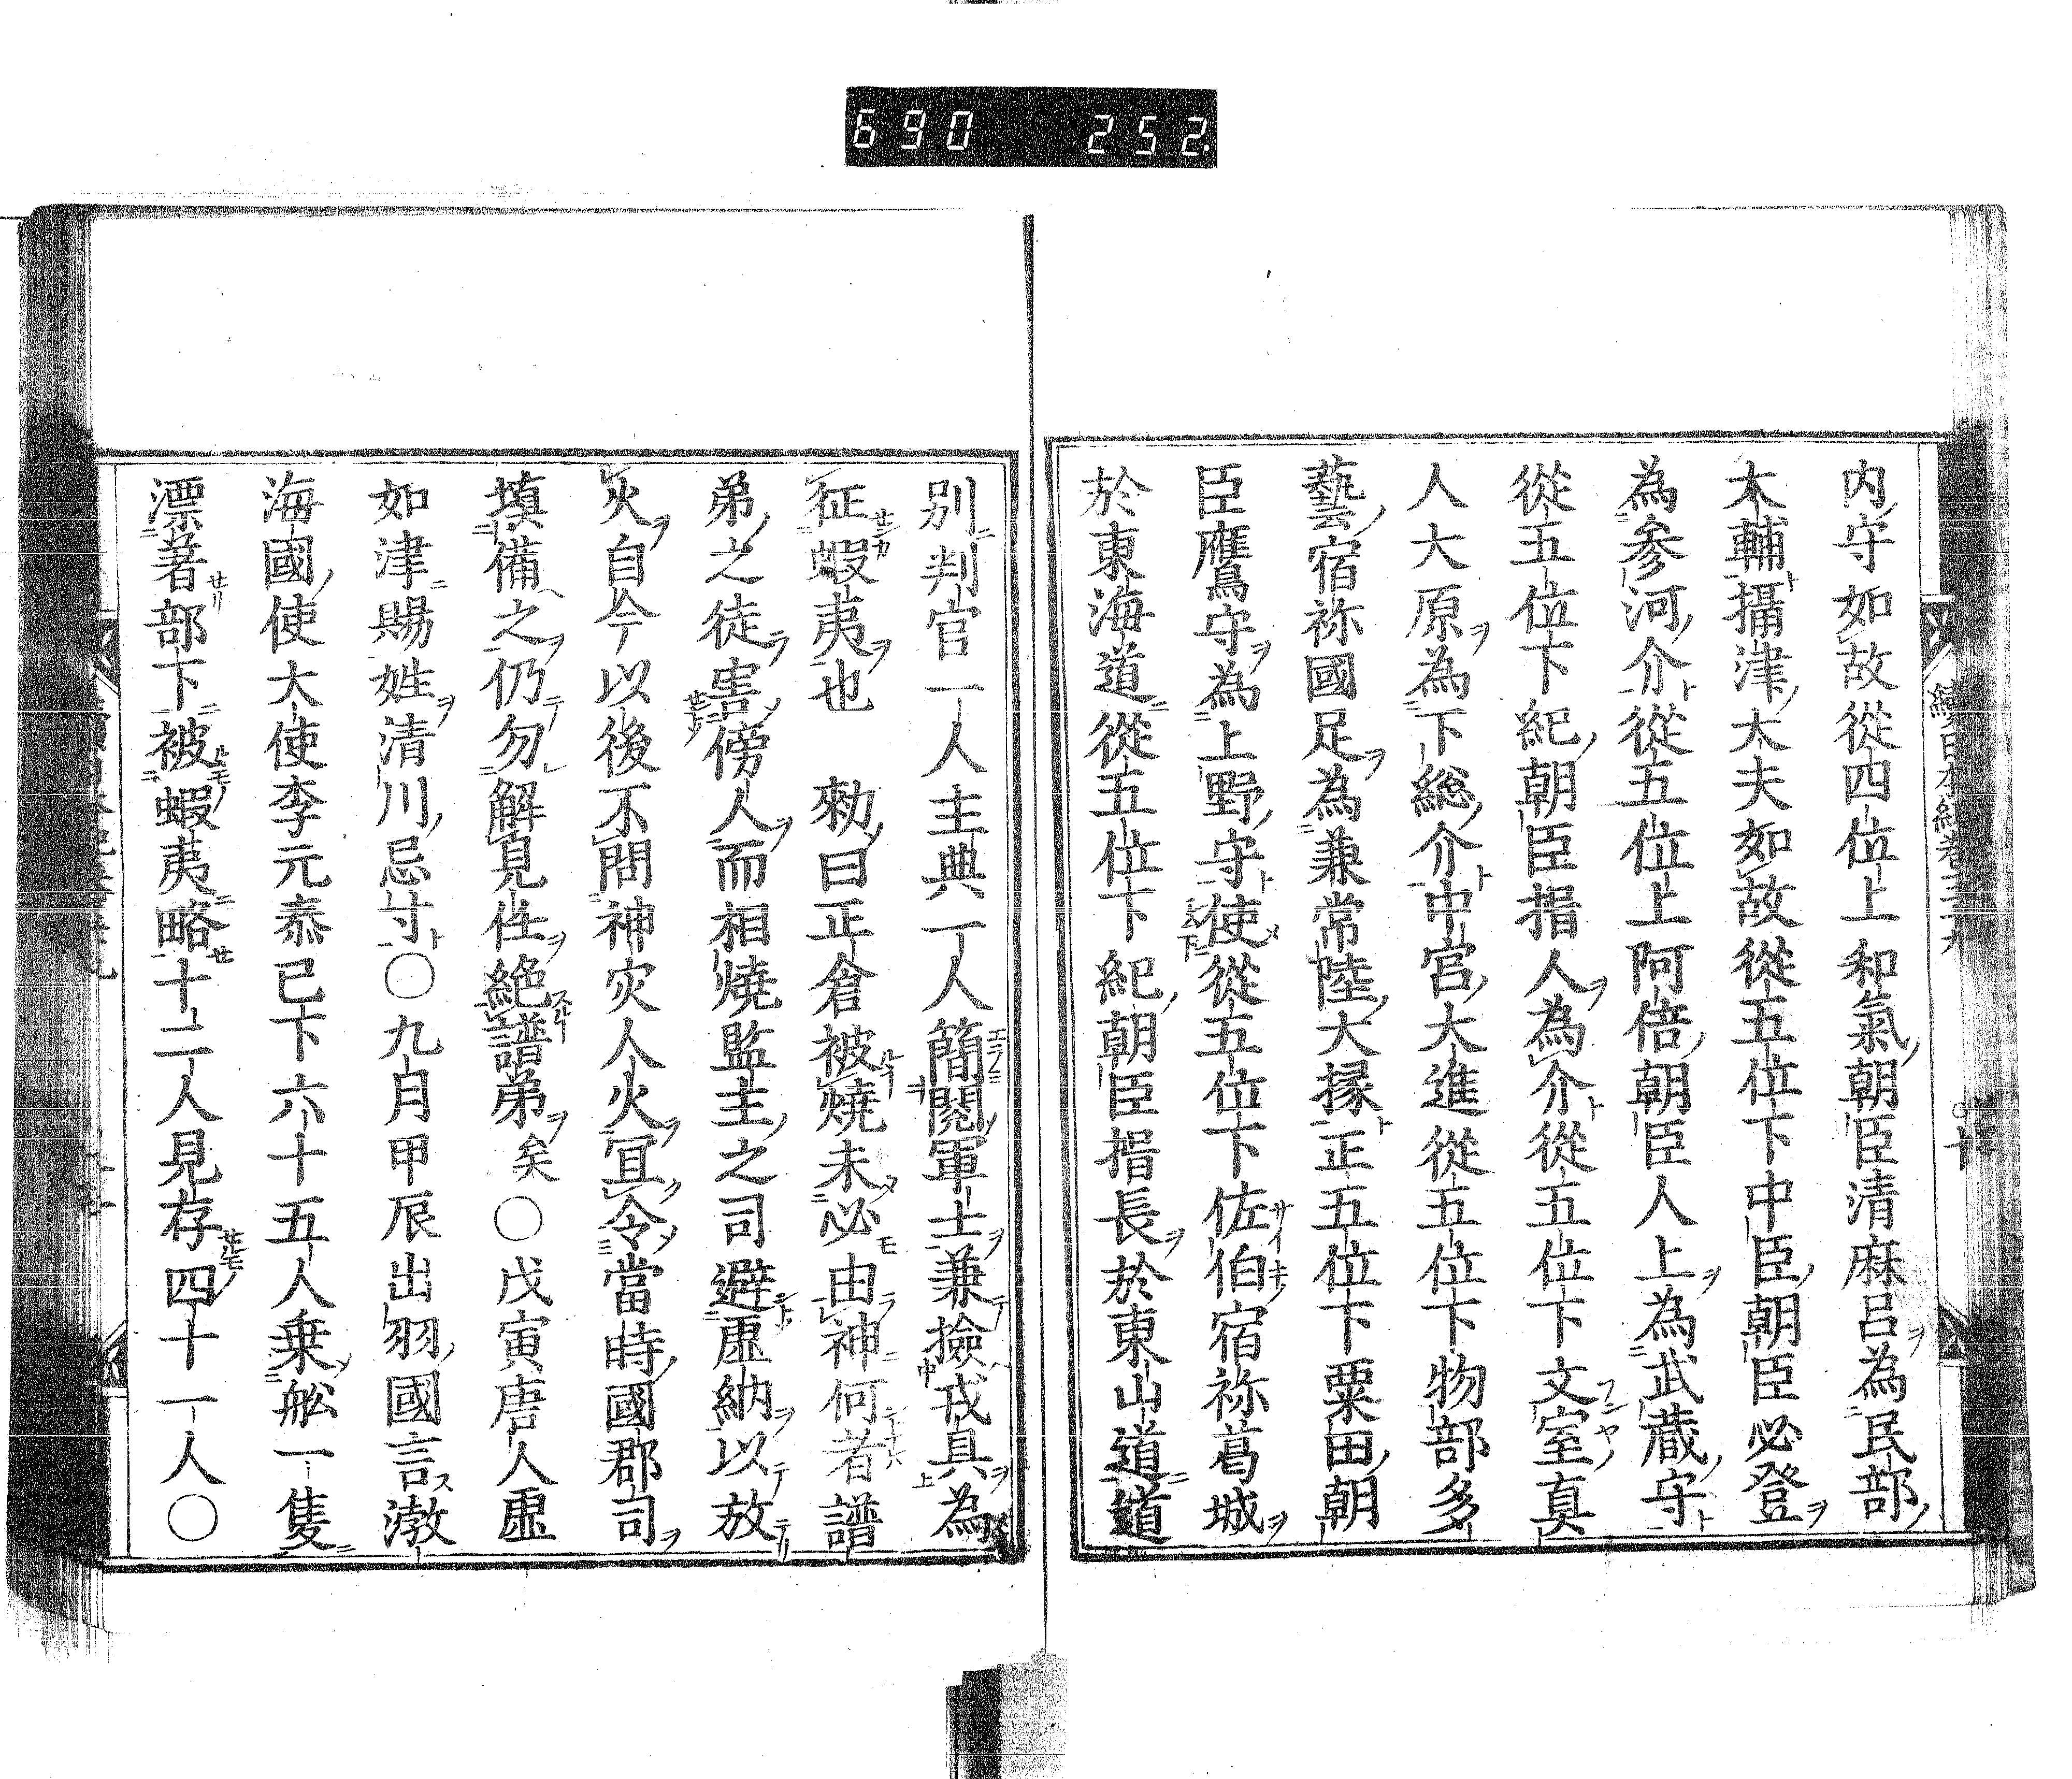 690 252.
内守如故從四位上和氣朝臣清麻呂為民部
大輔攝津大夫如故從五位下中臣朝臣必登
為参河介從五位上阿倍朝臣人上為武藏守
從五位下紀朝臣揩人為介從五位下文室真
人大原為下総介中宮大進從五位下物部多
藝宿祢國足為兼常陸大掾正五位下粟田朝
臣鷹守為上野守使從五位下佐伯宿祢葛城
於東海道從五位下紀朝臣揩長於東山道道
別判官一人主典一人簡閲軍士兼撿戎具為
征蝦夷也　勑曰正倉被燒未必由神何者譜
弟之徒害傍人而相燒監主之司避虛納以放
火自今以後不問神灾人火冝令當時國郡司
填備之仍勿解見任絶譜弟矣〇戊寅唐人盧
如津賜姓清川忌寸〇九月甲辰出羽國言渤
海國使大使李元泰已下六十五人乗舩一隻
漂著部下被蝦夷略十二人見存四十一人〇